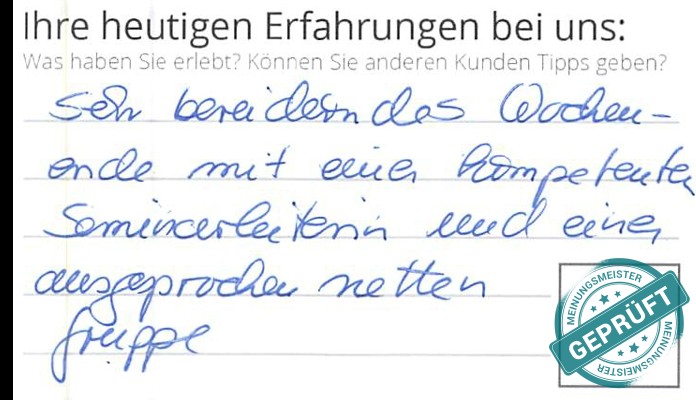 Ihre heutigen Erfahrungen bei uns:
Was haben Sie erlebt? Können Sie anderen Kunden Tipps geben?
Sehr bereicherndes Wochen-
ende mit einer kompetenten
Seminarleiterin und einer
ausgesprochen netten
Gruppe
MEINUNGSMEISTER
GEPRÜFT
MEINUNGSMEISTER